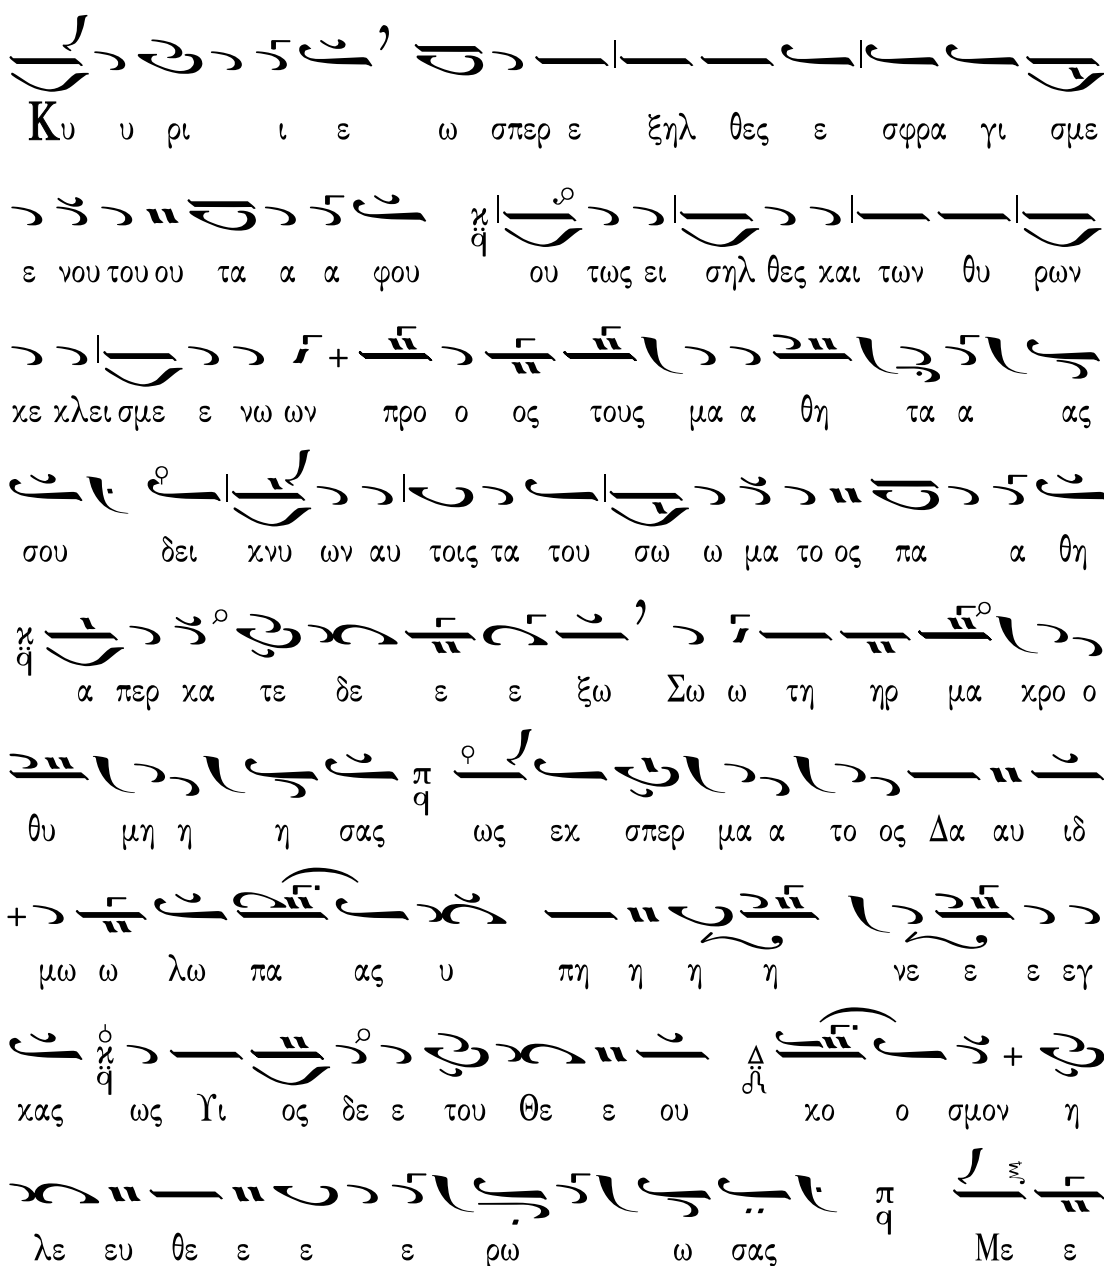 Κυ υ ρι ι ε ω σπερ ε ξηλ θες ε σφρα γι σμε
ε νου του ου τα α α φου ϰ q ου τως ει σηλ θες και των θυ ρων
κε κλει σμε ε νω ων προ ο ος τους μα α θη τα α ας
σου δει κνυ ων αυ τοις τα του σω ω μα το ος πα α θη
ϰ q α περ κα τε δε ε ε ξω Σω ω τη ηρ μα κρο ο
θυ μη η η σας π q ως εκ σπερ μα α το ος Δα αυ ιδ
μω ω λω πα ας υ πη η η η νε ε ε εγ
κας ϰ q ως Υι ος δε ε του Θε ε ου Δ κο ο σμον η
λε ευ θε ε ε ε ρω ω σας π q Με ε